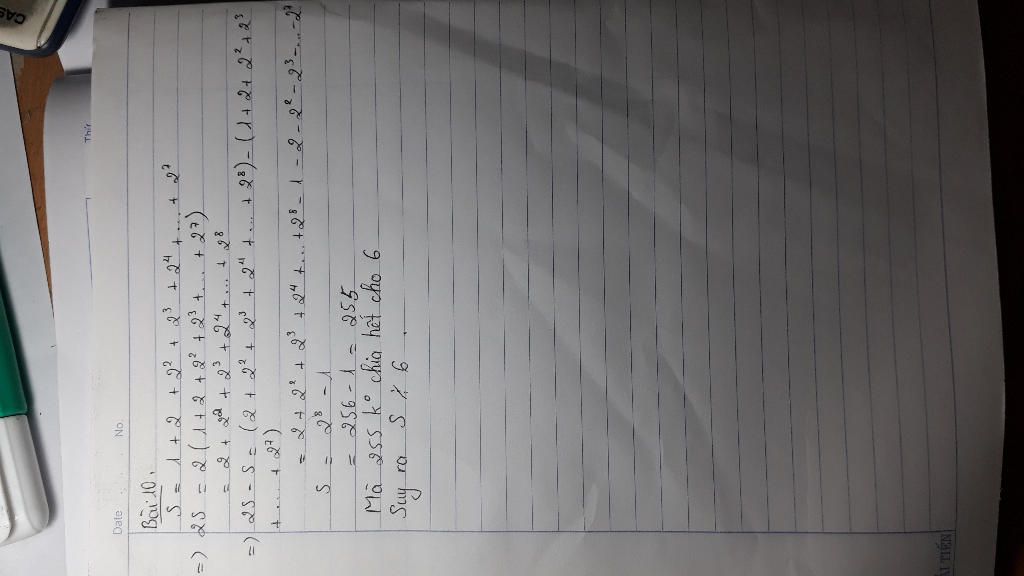 CAS
Thứ
Date No.
Bài 10.
S = 1 + 2 + 2² + 2³ + 2⁴ + ... + 2⁷
=) 2S = 2(1 + 2 + 2² + 2³ + ... + 2⁷)
= 2 + 2² + 2³ + 2⁴ + ... + 2⁸
=) 2S - S = (2 + 2² + 2³ + 2⁴ + ... + 2⁸) - (1 + 2 + 2² + 2³
+ ... + 2⁷)
= 2 + 2² + 2³ + 2⁴ + ... + 2⁸ - 1 - 2 - 2² - 2³ - ... - 2⁷
S = 2⁸ - 1
= 256 - 1 = 255
Mà 255 k° chia hết cho 6
Suy ra S ⋮̸ 6.
ẢI TIẾN